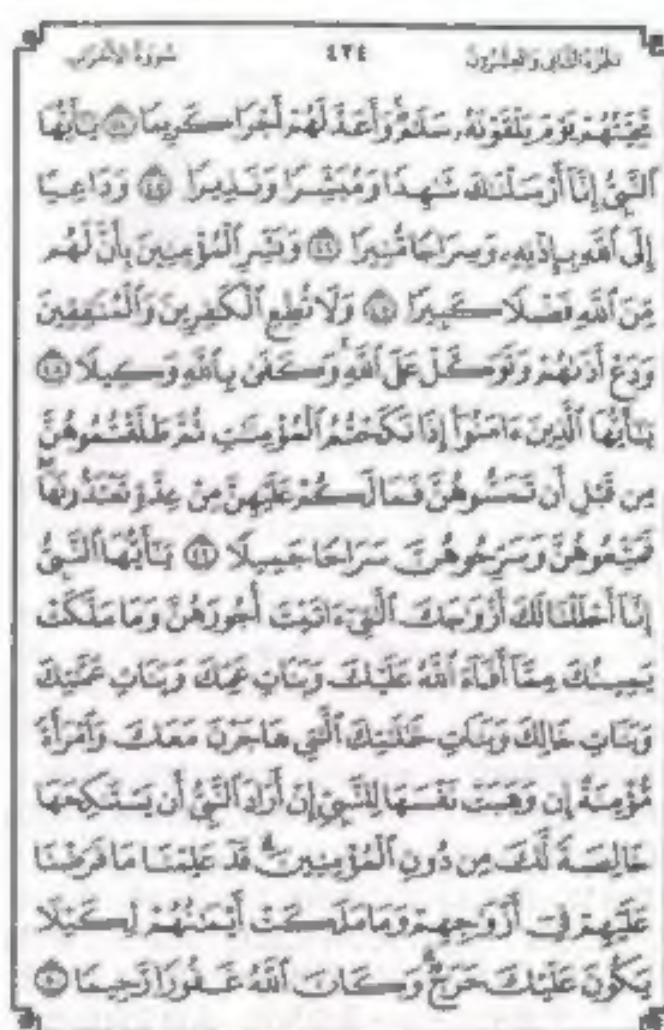 الجزء الثاني والعشرون ٤٢٤ سورة الأحزاب
تَحِيَّتُهُمْ يَوْمَ يَلْقَوْنَهُۥ سَلَٰمٌ وَأَعَدَّ لَهُمْ أَجْرًا كَرِيمًا ٤٤ يَٰٓأَيُّهَا
ٱلنَّبِىُّ إِنَّآ أَرْسَلْنَٰكَ شَٰهِدًا وَمُبَشِّرًا وَنَذِيرًا ٤٥ وَدَاعِيًا
إِلَى ٱللَّهِ بِإِذْنِهِۦ وَسِرَاجًا مُّنِيرًا ٤٦ وَبَشِّرِ ٱلْمُؤْمِنِينَ بِأَنَّ لَهُم
مِّنَ ٱللَّهِ فَضْلًا كَبِيرًا ٤٧ وَلَا تُطِعِ ٱلْكَٰفِرِينَ وَٱلْمُنَٰفِقِينَ
وَدَعْ أَذَىٰهُمْ وَتَوَكَّلْ عَلَى ٱللَّهِ وَكَفَىٰ بِٱللَّهِ وَكِيلًا ٤٨
يَٰٓأَيُّهَا ٱلَّذِينَ ءَامَنُوٓا۟ إِذَا نَكَحْتُمُ ٱلْمُؤْمِنَٰتِ ثُمَّ طَلَّقْتُمُوهُنَّ
مِن قَبْلِ أَن تَمَسُّوهُنَّ فَمَا لَكُمْ عَلَيْهِنَّ مِنْ عِدَّةٍ تَعْتَدُّونَهَا
فَمَتِّعُوهُنَّ وَسَرِّحُوهُنَّ سَرَاحًا جَمِيلًا ٤٩ يَٰٓأَيُّهَا ٱلنَّبِىُّ
إِنَّآ أَحْلَلْنَا لَكَ أَزْوَٰجَكَ ٱلَّٰتِىٓ ءَاتَيْتَ أُجُورَهُنَّ وَمَا مَلَكَتْ
يَمِينُكَ مِمَّآ أَفَآءَ ٱللَّهُ عَلَيْكَ وَبَنَاتِ عَمِّكَ وَبَنَاتِ عَمَّٰتِكَ
وَبَنَاتِ خَالِكَ وَبَنَاتِ خَٰلَٰتِكَ ٱلَّٰتِى هَاجَرْنَ مَعَكَ وَٱمْرَأَةً
مُّؤْمِنَةً إِن وَهَبَتْ نَفْسَهَا لِلنَّبِىِّ إِنْ أَرَادَ ٱلنَّبِىُّ أَن يَسْتَنكِحَهَا
خَالِصَةً لَّكَ مِن دُونِ ٱلْمُؤْمِنِينَ ۗ قَدْ عَلِمْنَا مَا فَرَضْنَا
عَلَيْهِمْ فِىٓ أَزْوَٰجِهِمْ وَمَا مَلَكَتْ أَيْمَٰنُهُمْ لِكَيْلَا
يَكُونَ عَلَيْكَ حَرَجٌ ۗ وَكَانَ ٱللَّهُ غَفُورًا رَّحِيمًا ٥٠